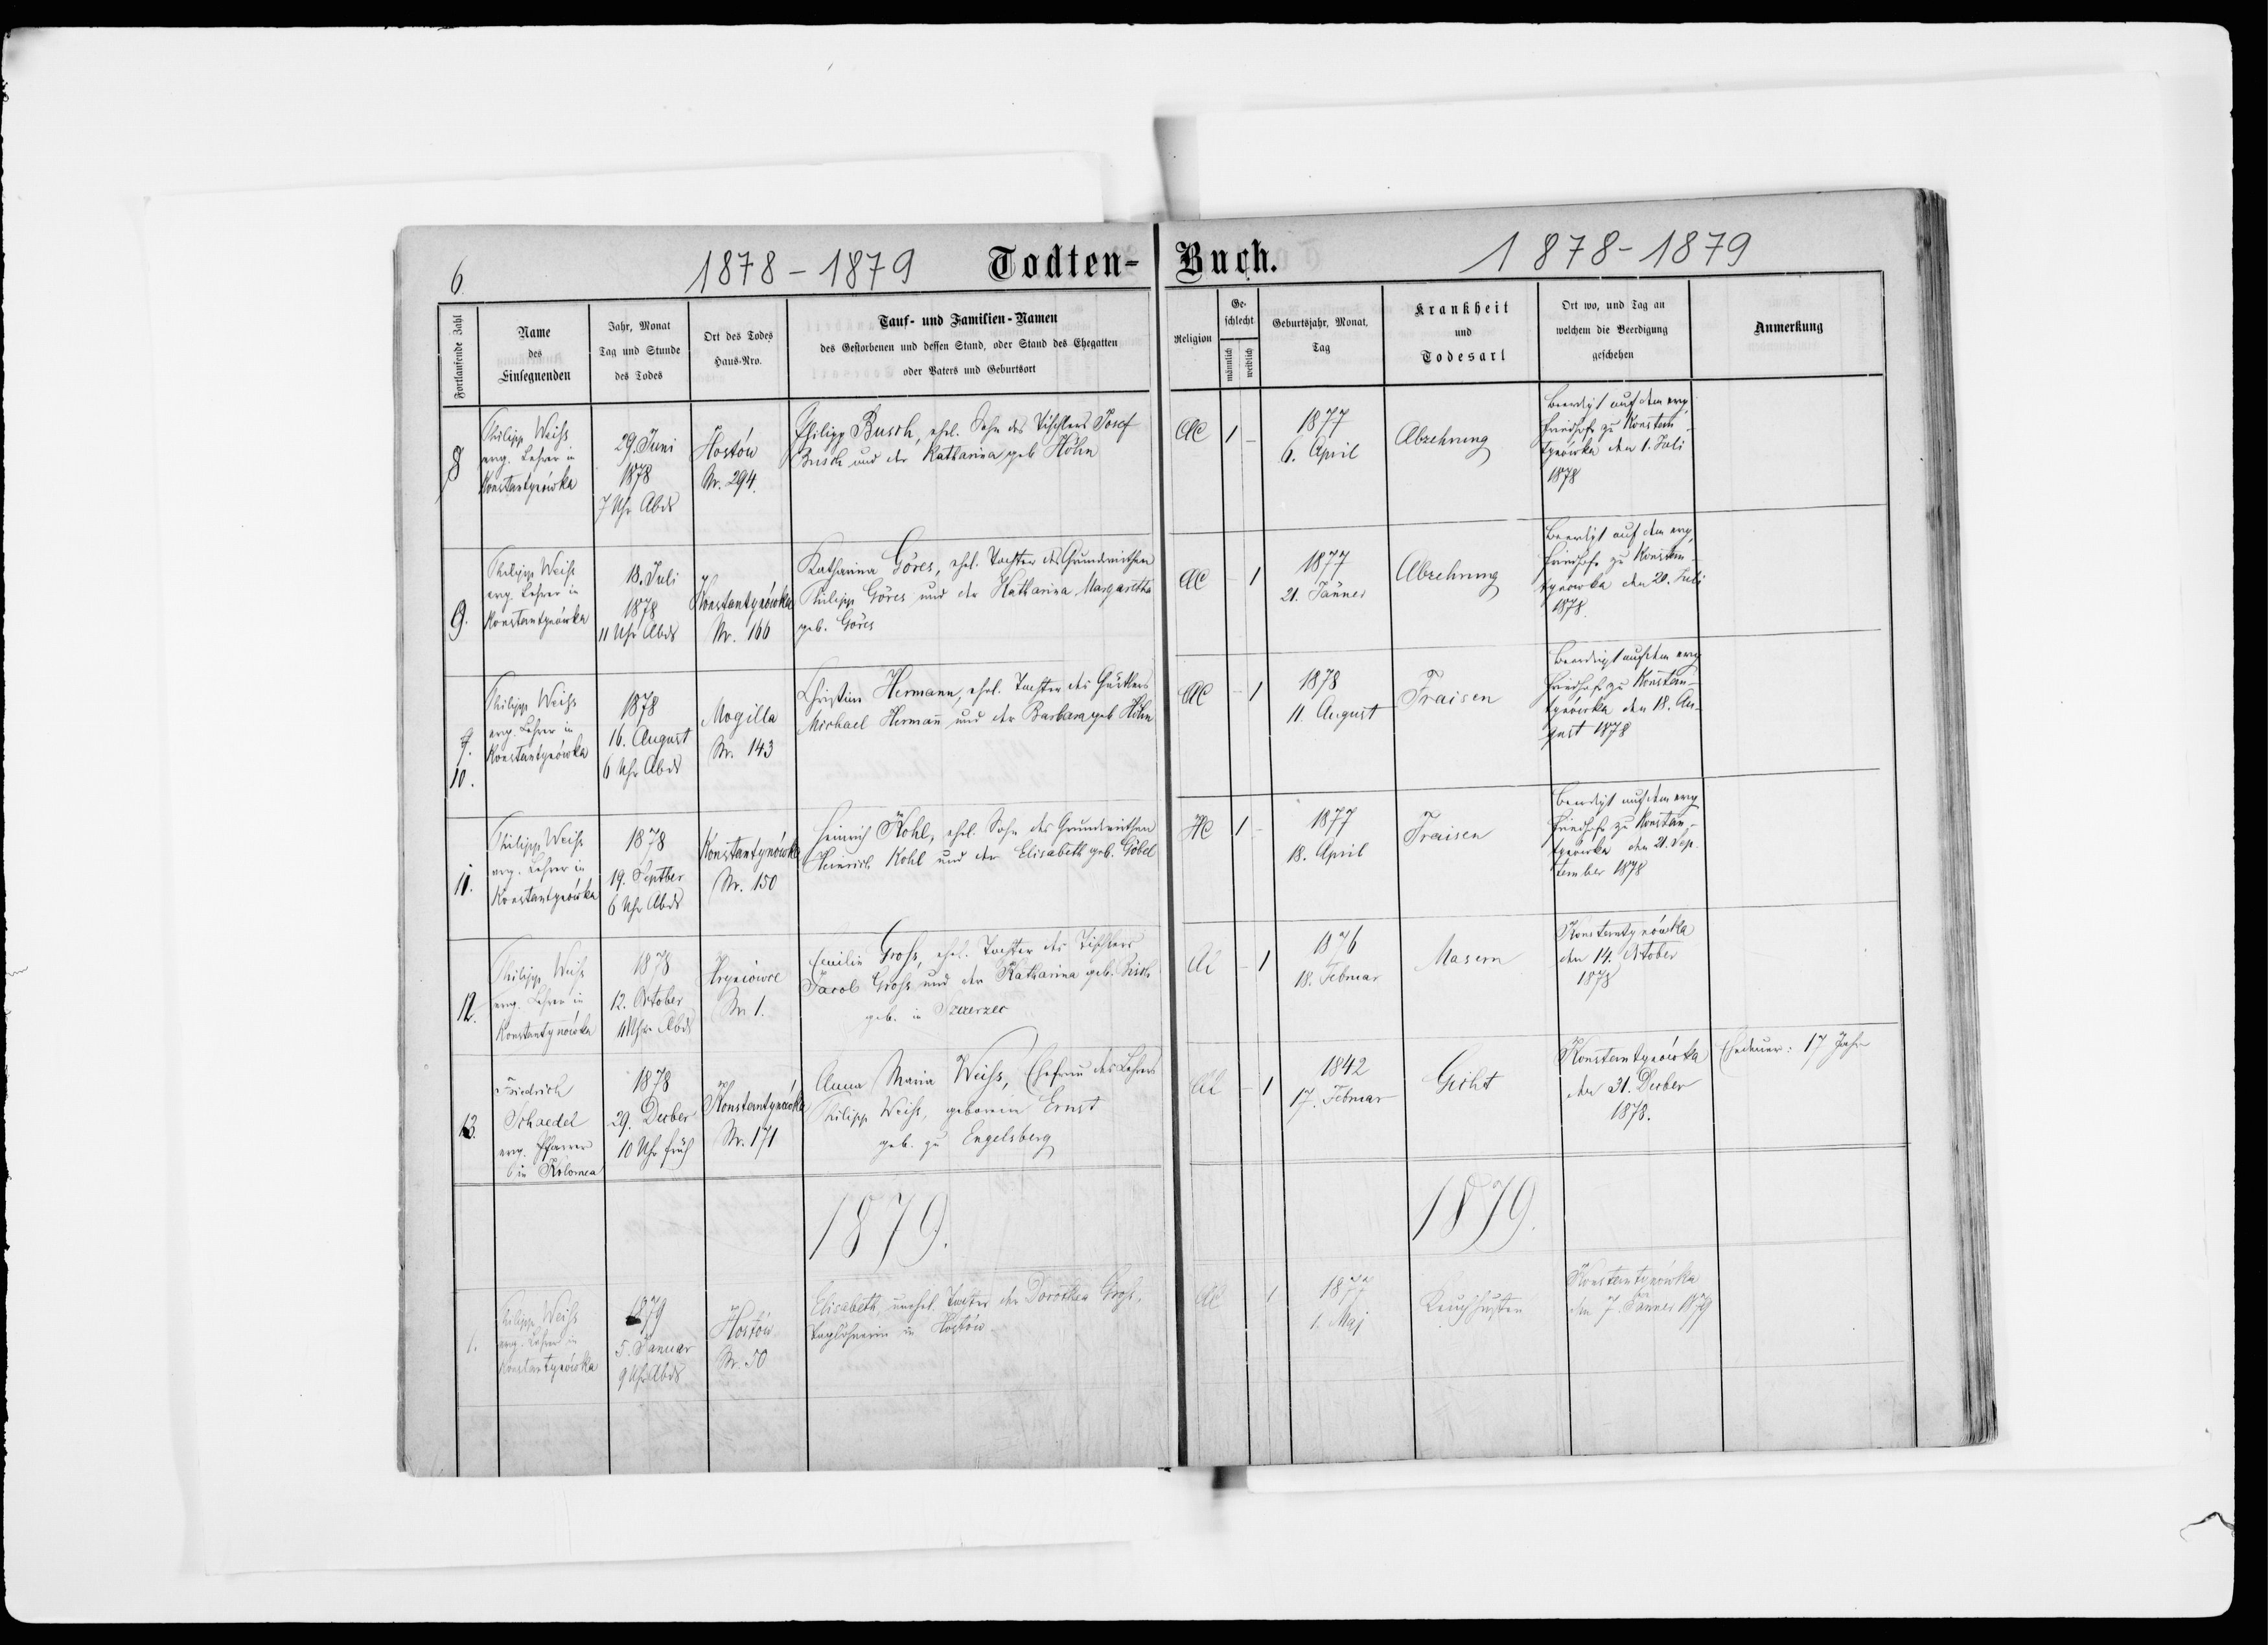 6.
1878-1879 Todten-Buch. 1878-1879
Fortlaufende Zahl
Name
des
Einsegnenden
Jahr, Monat
Tag und Stunde
des Todes
Ort des Todes
Haus-Nro.
Tauf- und Familien-Namen
des Gestorbenen und dessen Stand, oder Stand des Ehegatten
oder Vaters und Geburtsort
Religion
Ge-
schlecht
männlich
weiblich
Geburtsjahr, Monat,
Tag
Krankheit
und
Todesart
Ort wo, und Tag an
welchem die Beerdigung
geschehen
Anmerkung
8
Philipp Weiss
evg. Lehrer in
Konstantynówka
29. Juni
1878
7 Uhr Abds
Hostów
Nr. 294.
Philipp Busch, ehel. Sohn des Tischlers Josef
Busch und der Katharina geb Höhn
AC
1
-
1877
6. April
Abzehrung
Beerdigt auf dem evg.
Friedhofe zu Konstan-
tynówka den 1. Juli
1878
9.
Philipp Weiss
evg. Lehrer in
Konstantynówka
18. Juli
1878
11 Uhr Abds
Konstantynówka
Nr. 166
Katharina Göres, ehel. Tochter des Grundwirthen
Philipp Göres und der Katharina Margaretha
geb. Göres
AC
-
1
1877
21. Jänner
Abzehrung
Beerdigt auf dem evg.
Friedhofe zu Konstan-
tynówka den 20. Juli
1878.
10.
Philipp Weiss
evg. Lehrer in
Konstantynówka
1878
16. August
6 Uhr Abds
Mogilla
Nr. 143
Christine Hermann, ehel. Tochter des
Michael Hermann und der Barbara geb Höhn
AC
-
1
1878
11. August
Fraisen
Beerdigt auf dem evg
Friedhofe zu Konstan-
tynówka den 18. Au-
gust 1878
11.
Philipp Weiss
evg. Lehrer in
Konstantynówka
1878
19. Septber
6 Uhr Abds
Konstantynówka
Nr. 150
Heinrich Kohl, ehel. Sohn des Grundwirthen
Heinrich Kohl und der Elisabeth geb. Göbel
HC
1
-
1877
18. April
Fraisen
Beerdigt auf dem evg
Friedhofe zu Konstan-
tynówka den 21. Sep-
tember 1878
12.
Philipp Weiss
evg. Lehrer in
Konstantynówka
1878
12. October
Uhr Abds
Hryniowce
Nr. 1.
Emilie Gross, ehel. Tochter des Tischlers
Jacob Gross und der Katharina geb.
geb. in Szczerzec
AC
-
1
1876
18. Februar
Masern
Konstantynówka
den 14. October
1878
13.
Friedrich
Schaedel
evg. Pfarrer
in Kolomea
1878
29. Decber
10 Uhr früh
Konstantynówka
Nr. 171
Anna Maria Weiss, Ehefrau des Lehrers
Philipp Weiss, geborene Ernst
geb. zu Engelsberg
AC
-
1
1842
17. Februar
Gicht
Konstantynówka
den 31. Decber
1878.
Ehedauer: 17 Jahr
1879.
1879.
1.
Philipp Weiss
evg. Lehrer in
Konstantynówka
1879
5. Januar
9 Uhr Abds
Hostów
Nr. 50
Elisabeth, unehel. Tochter der Dorothea Gross,
Taglöhnerin in Hostów
AC
1
1877
1. Maj
Keuchhusten
Konstantynówka
den 7. Jänner 1879